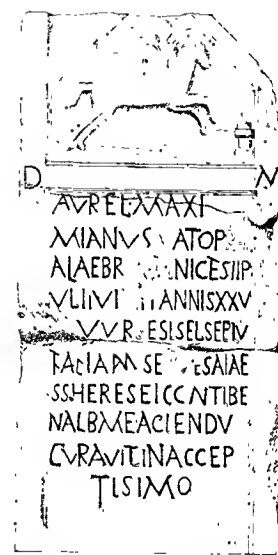 D M
AVREL MAXI
MIANVS ATOP
ALAEBR NICESIIP
VLIIVI ANNISXXV
VVR ESISELSEPIV
TACIAMSE SAIAE
SSHERESEICCNTIBE
NALBMEACIENDV
CVRAVITINACCEP
TISIMO